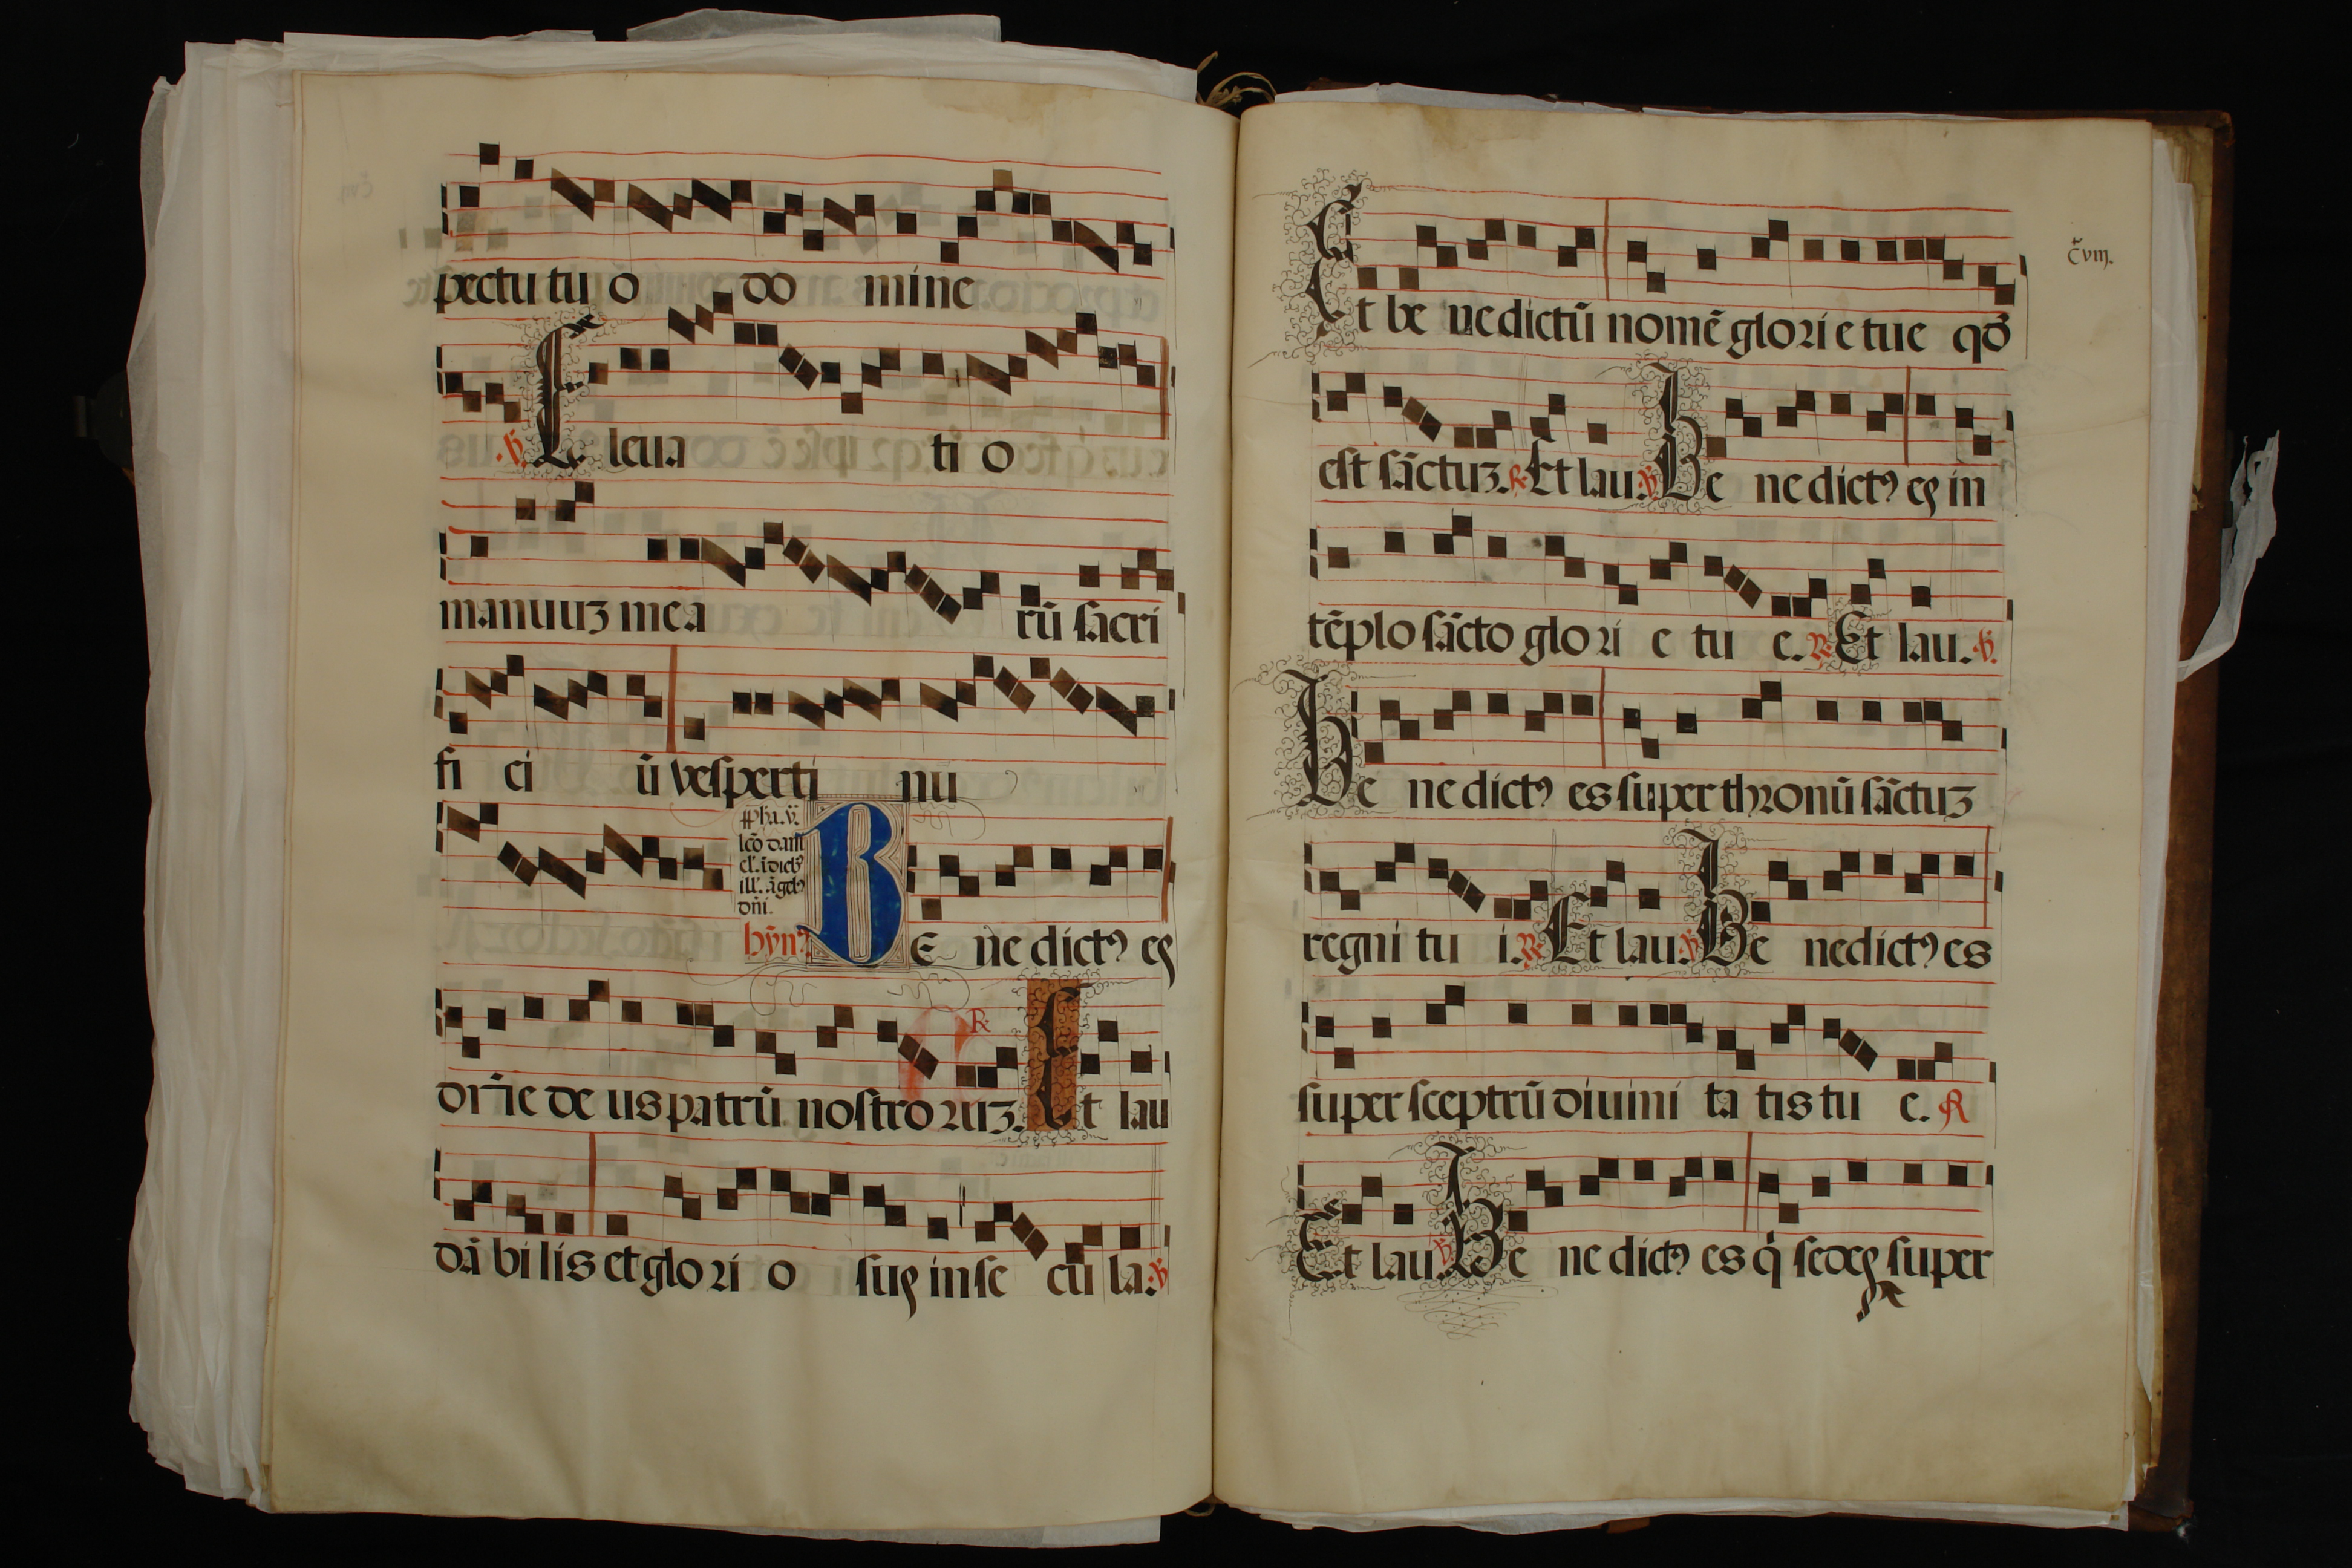 pectu tu o do mine
℣. Eleua ti o
manuuȝ mea rū sacri
fi ci ū vesperti nu
dn̄i.
hȳn⁹. BE ne dict⁹ es
dn̄e de us patrū nostro ruȝ. Et lau
dā bi lis et glori o sus in se cu la. ℣
c̄viij.
Et be nedictū nomē glori e tue qd̄
est sāctuȝ. ℟. Et lau. ℣ Be ne dict⁹ es in
tēplo sācto glo ri e tu e. ℟. Et lau. ℣.
Be ne dict⁹ es super thronū sāctuȝ
regni tu i. ℟. Et lau. ℣ Be nedict⁹ es
super sceptrū diuini ta tis tu e. ℟
Et lau. ℣ Be ne dict⁹ es q̇ sedes super